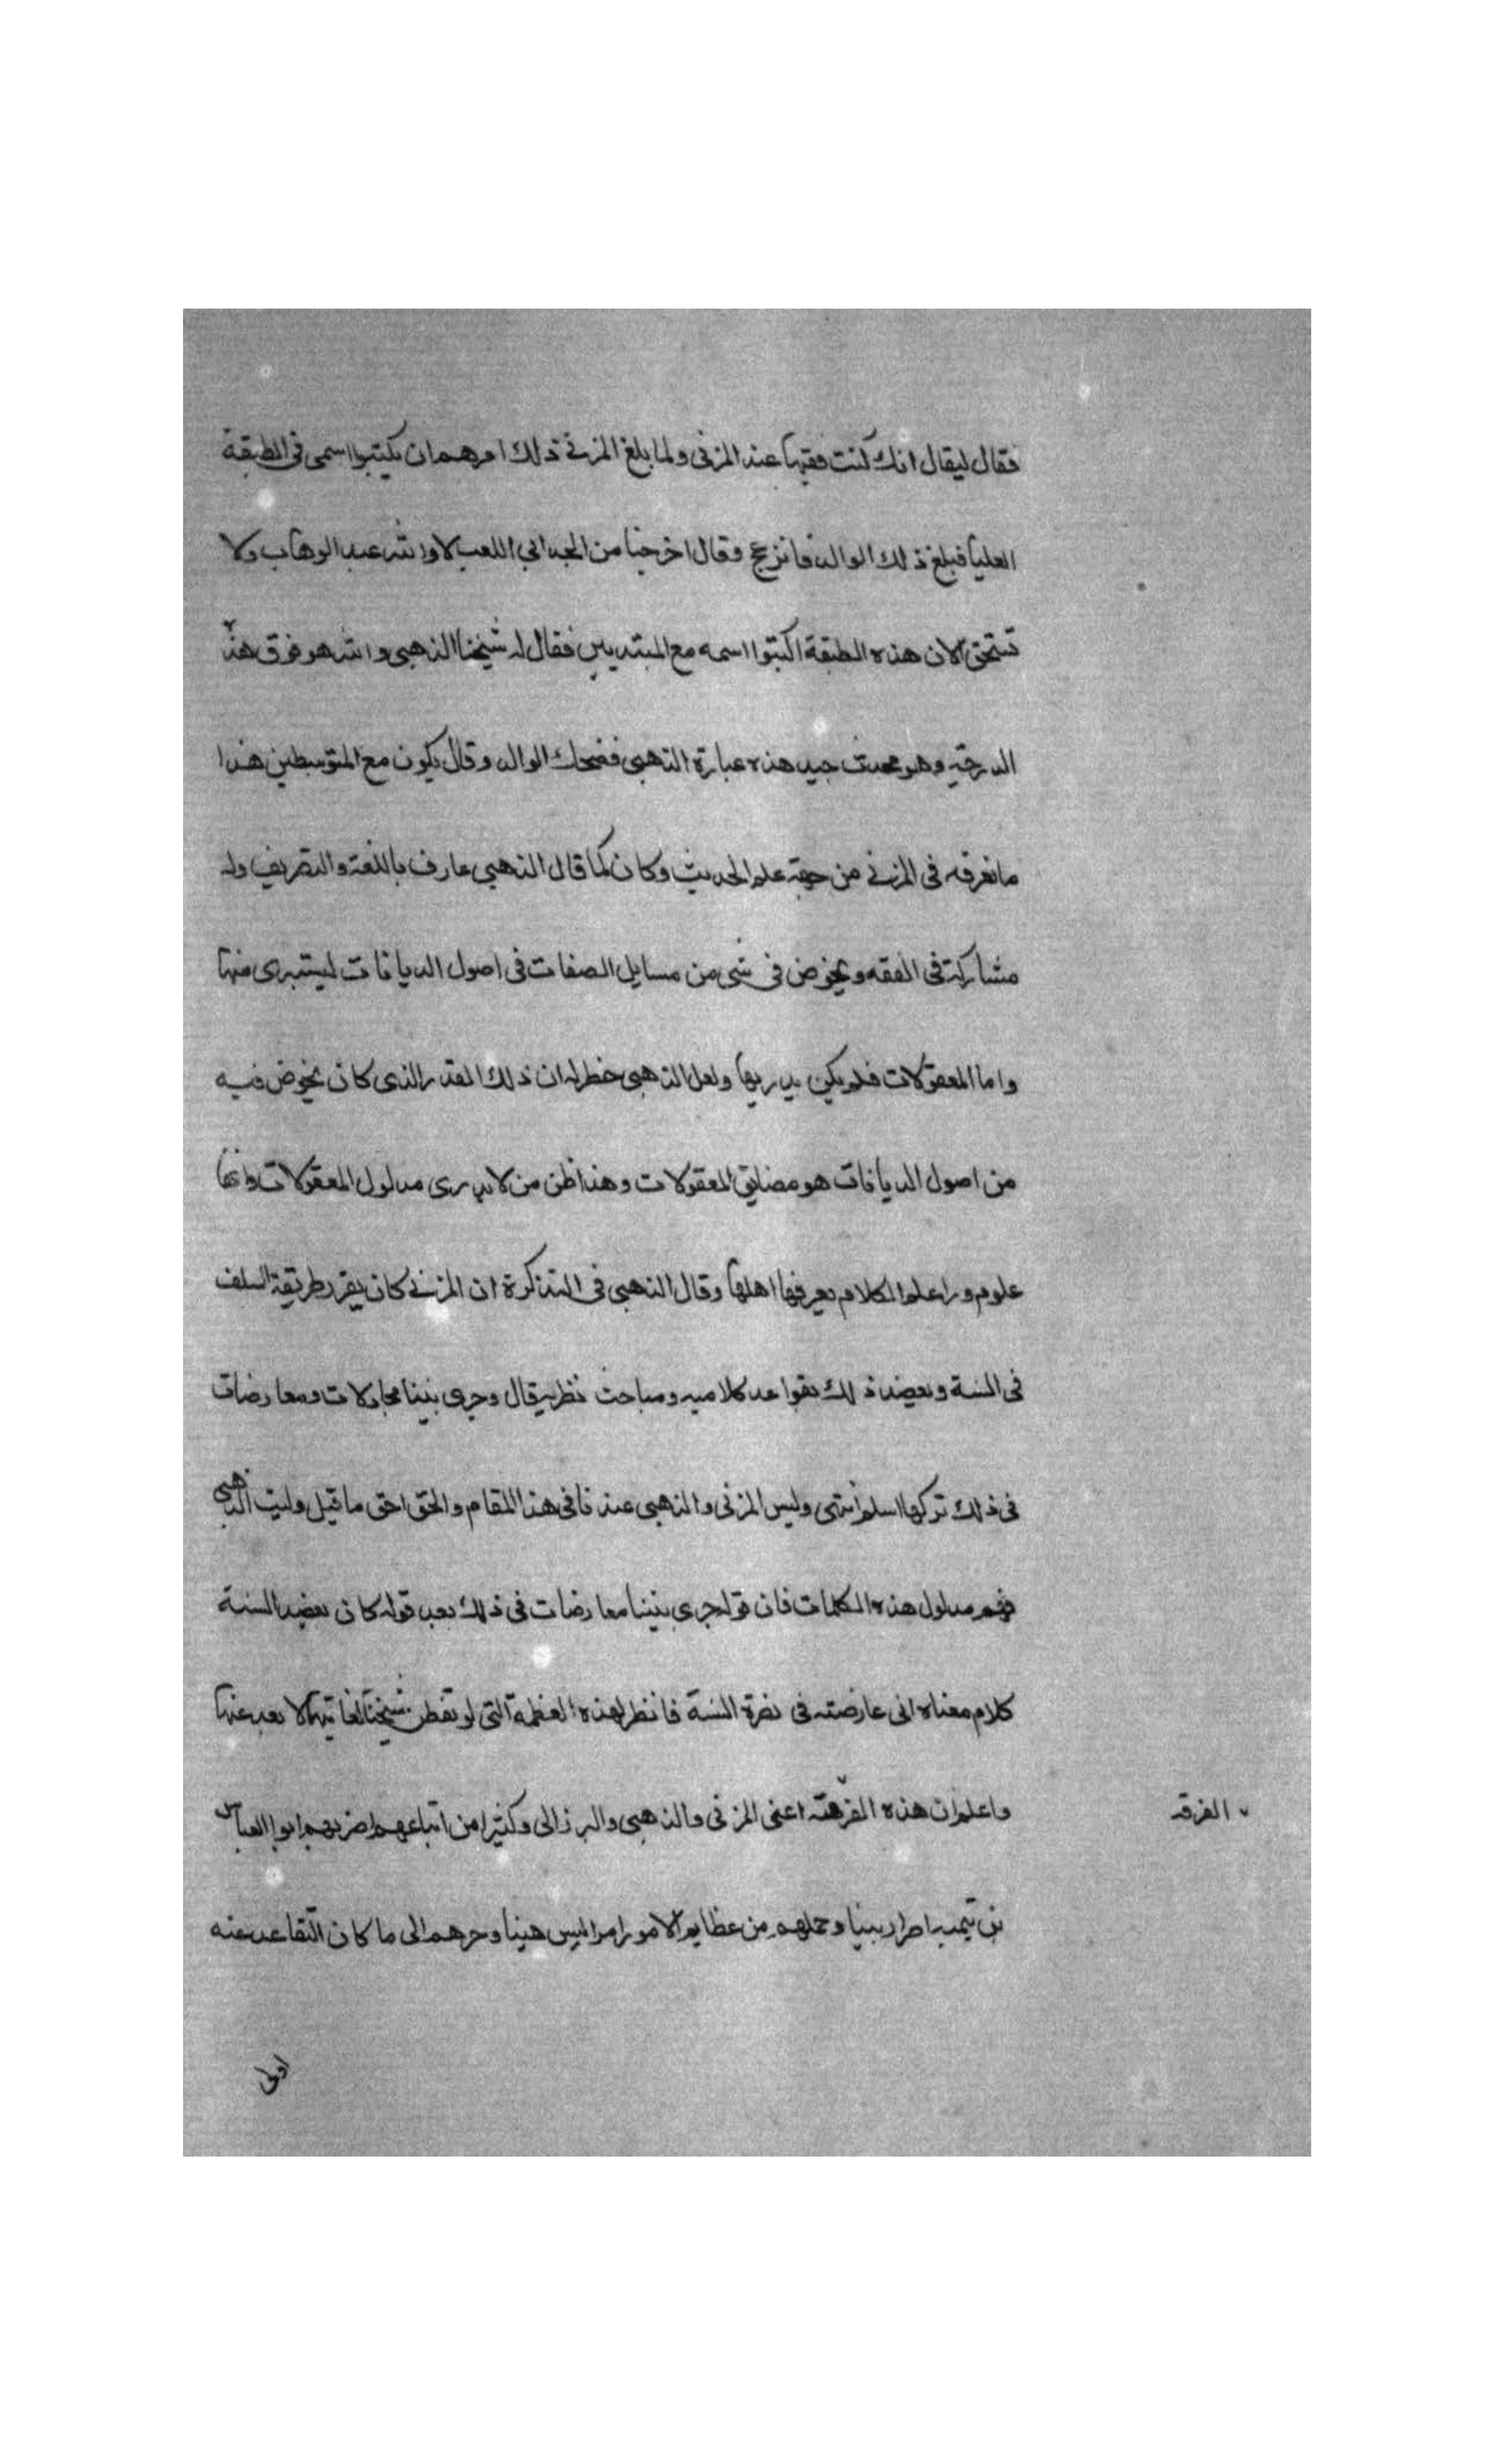 فقال ليقال انك كنت فقيها عند المزنى ولما بلغ المزني ذلك امرهم ان يكتبوا اسمى فى الطبقة
العليا فبلغ ذلك الوالد فانزعج وقال اخرجنا من الجد الي اللعب لا والله عبد الوهاب ولا
تستحق الان هذه الطبقة اكتبوا اسمه مع المبتديين فقال له شيخنا الذهبى والله هو فوق هذه
الدرجة وهو محدث جيد هذه عبارة الذهبى فضحك الوالد وقال يكون مع المتوسطين هذا
ما نعرفه فى المزني من جهة علم الحديث وكان كما قال الذهبى عارف باللغة والتصريف وله
مشاركة فى الفقه ويخوض فى شى من مسايل الصفات فى اصول الديانات ليستبرى منها
واما المعقولات فلم يكن يدريها ولعل الذهبى خطر له ان ذلك القدر الذى كان يخوض فيه
من اصول الديانات هو مضايق المعقولات وهذا ظن من لا يدرى مدلول المعقولات وانها
علوم ورا علم الكلام يعرفها اهلها وقال الذهبى فى التذكرة ان المزني كان يقرر طريقة السلف
فى السنة ويعضد ذلك بقواعد كلاميه ومباحث نظرية قال وجرى بيننا مجادلات ومعارضات
فى ذلك تركها اسلم انتهى وليس المزنى والذهبى عندنا فى هذا المقام والحق احق ما قيل وليت الذهبى
فهم مدلول هذه الكلمات فان قوله جرى بيننا معارضات فى ذلك بعد قوله كان يعضد السنة
كلام معناه انى عارضته فى نصرة السنة فانظر لهذه العظمة التى لو تفطن شيخنا لغايتها لا بعد عنها
واعلم ان هذه الفرقة اعنى المزنى والذهبى والبرزالى وكثيرا من اتباعهم اضر بهم ابو العباس
بن تيمية اضرارا بينا وحملهم من عظايم الامور امرا ليس هينا وجرهم الى ما كان التقاعد عنه
الفرقه
اولى